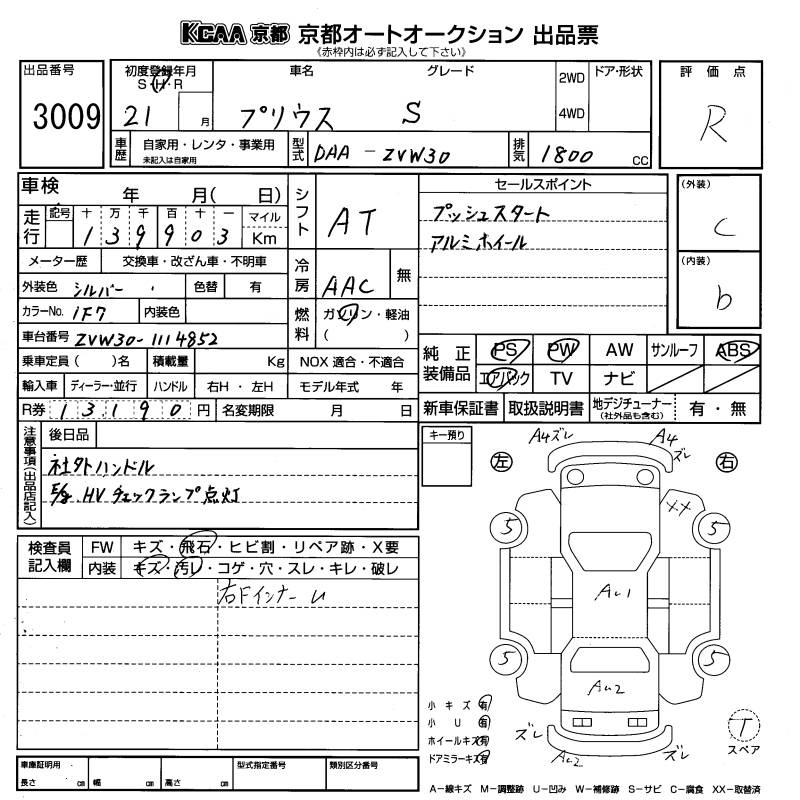 KCAA 京都 京都オートオークション 出品票
《赤枠内は必ず記入して下さい》
出品番号
3009
初度登録年月
S・H・R
21 月
車名
プリウス
グレード
S
2WD
4WD
ドア・形状
評価点
R
車歴
自家用・レンタ・事業用
未記入は自家用
型式
DAA-ZVW30
排気
1800 cc
車検 年 月( 日)
走行
記号 十 万 千 百 十 一 マイル
139903 Km
メーター歴 交換車・改ざん車・不明車
外装色 シルバー 色替 有
カラーNo. 1F7 内装色
車台番号 ZVW30-1114852
乗車定員( )名 積載量 Kg
輸入車 ディーラー・並行 ハンドル 右H・左H
R券 13190円 名変期限 月 日
シフト
AT
冷房
AAC 無
燃料
ガソリン・軽油
( )
NOX 適合・不適合
モデル年式 年
セールスポイント
プッシュスタート
アルミホイール
(外装)
C
(内装)
b
純正装備品
PS PW AW サンルーフ ABS
エアバック TV ナビ
新車保証書 取扱説明書 地デジチューナー(社外品も含む) 有・無
注意事項(出品店記入)
後日品
社外ハンドル
E/g.HVチェックランプ点灯
キー預り
検査員記入欄
FW キズ・飛石・ヒビ割・リペア跡・X要
内装 キズ・汚レ・コゲ・穴・スレ・キレ・破レ
右FインナーU
A4ズレ
A4
ズレ
左
右
XX
5
5
AU1
5
5
AU2
ズレ
AU2
ズレ
小キズ 有
小U 有
ホイールキズ 有
ドアミラーキズ 有
T
スペア
車庫証明用
長さ cm 幅 cm 高さ cm
型式指定番号
類別区分番号
A-線キズ M-調整跡 U-凹み W-補修跡 S-サビ C-腐食 XX-取替済